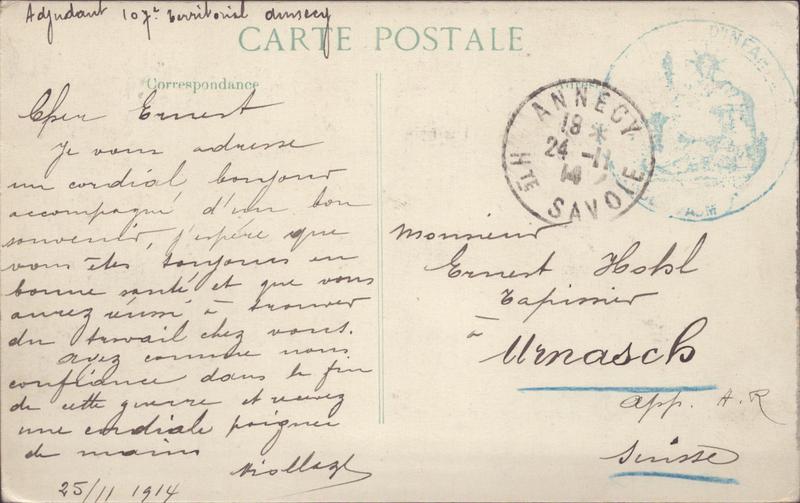 Adjudant 107e territorial Annecy
CARTE POSTALE
Correspondance
Cher Ernest
Je vous adresse
un cordial bonjour
accompagné d'un bon
souvenir, j'espère que
vous êtes toujours en
bonne santé et que vous
aurez réussi à trouver
du travail chez vous.
ayez comme nous
confiance dans la fin
de cette guerre et recevez
une cordiale poignée
de mains
25/11 1914
ANNECY
18 *
24 -11
14
HTE SAVOIE
D'INFA
Monsieur
Ernest
Tapissier
à
Urnasch
App. A. R
Suisse